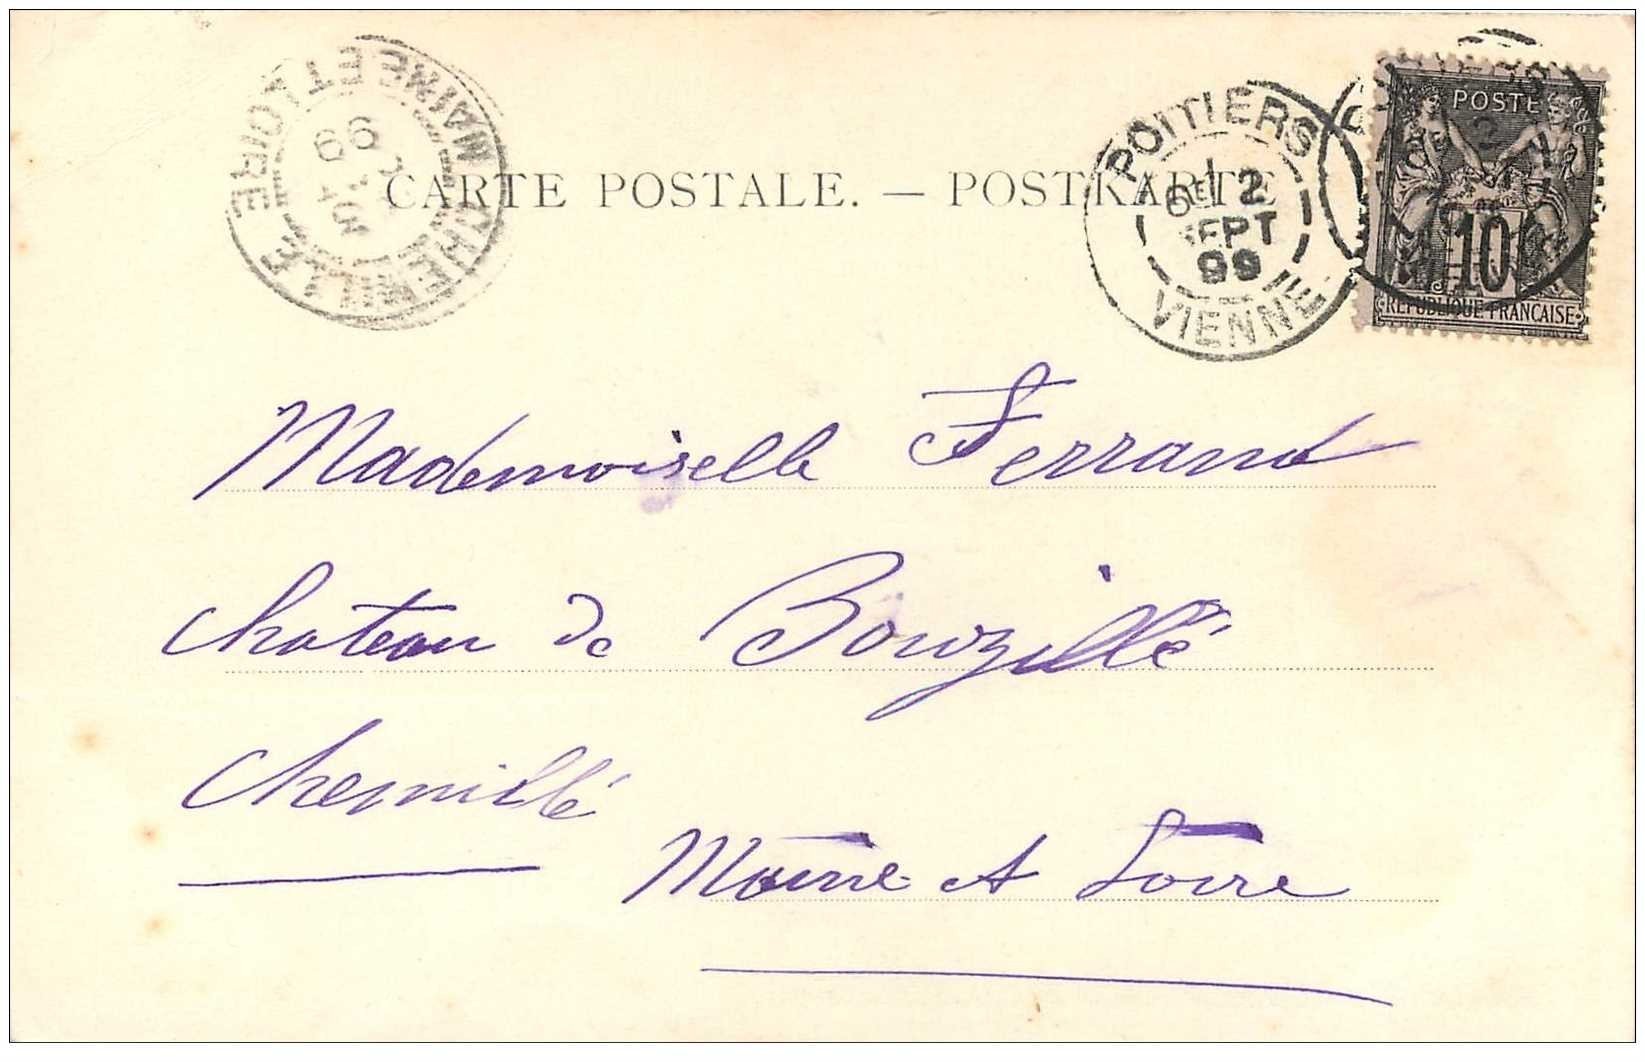 CHEMILLE
MAINE ET LOIRE
99
CARTE POSTALE. — POSTKARTE
POITIERS
2
SEPT
99
VIENNE
POSTES
10
REPUBLIQUE FRANCAISE
Mademoiselle Ferrand
Chateau de Bouzillé
Chemillé
Maine et Loire